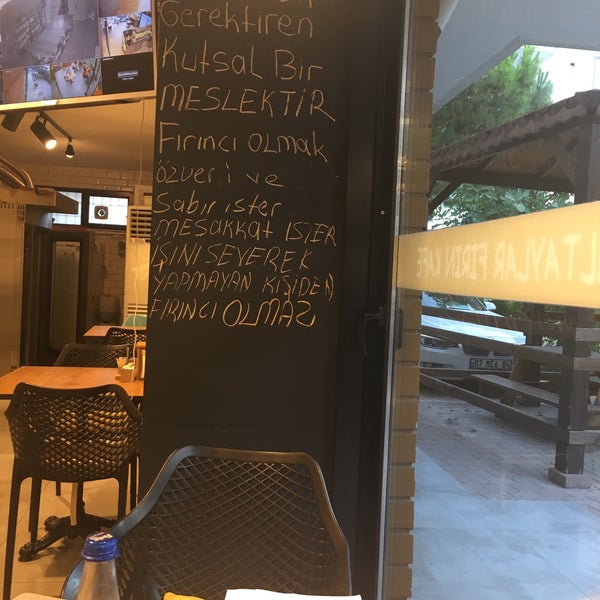 Gerektiren
Kutsal Bir
MESLEKTİR
Fırıncı OLMAK
özveri ve
Sabır ister
MEŞAKKAT İSTER
İŞİNİ SEVEREK
YAPMAYAN KİŞİDEN
FIRINCI OLMAZ
ALTAYLAR FIRIN KAFE
07 MEA 04